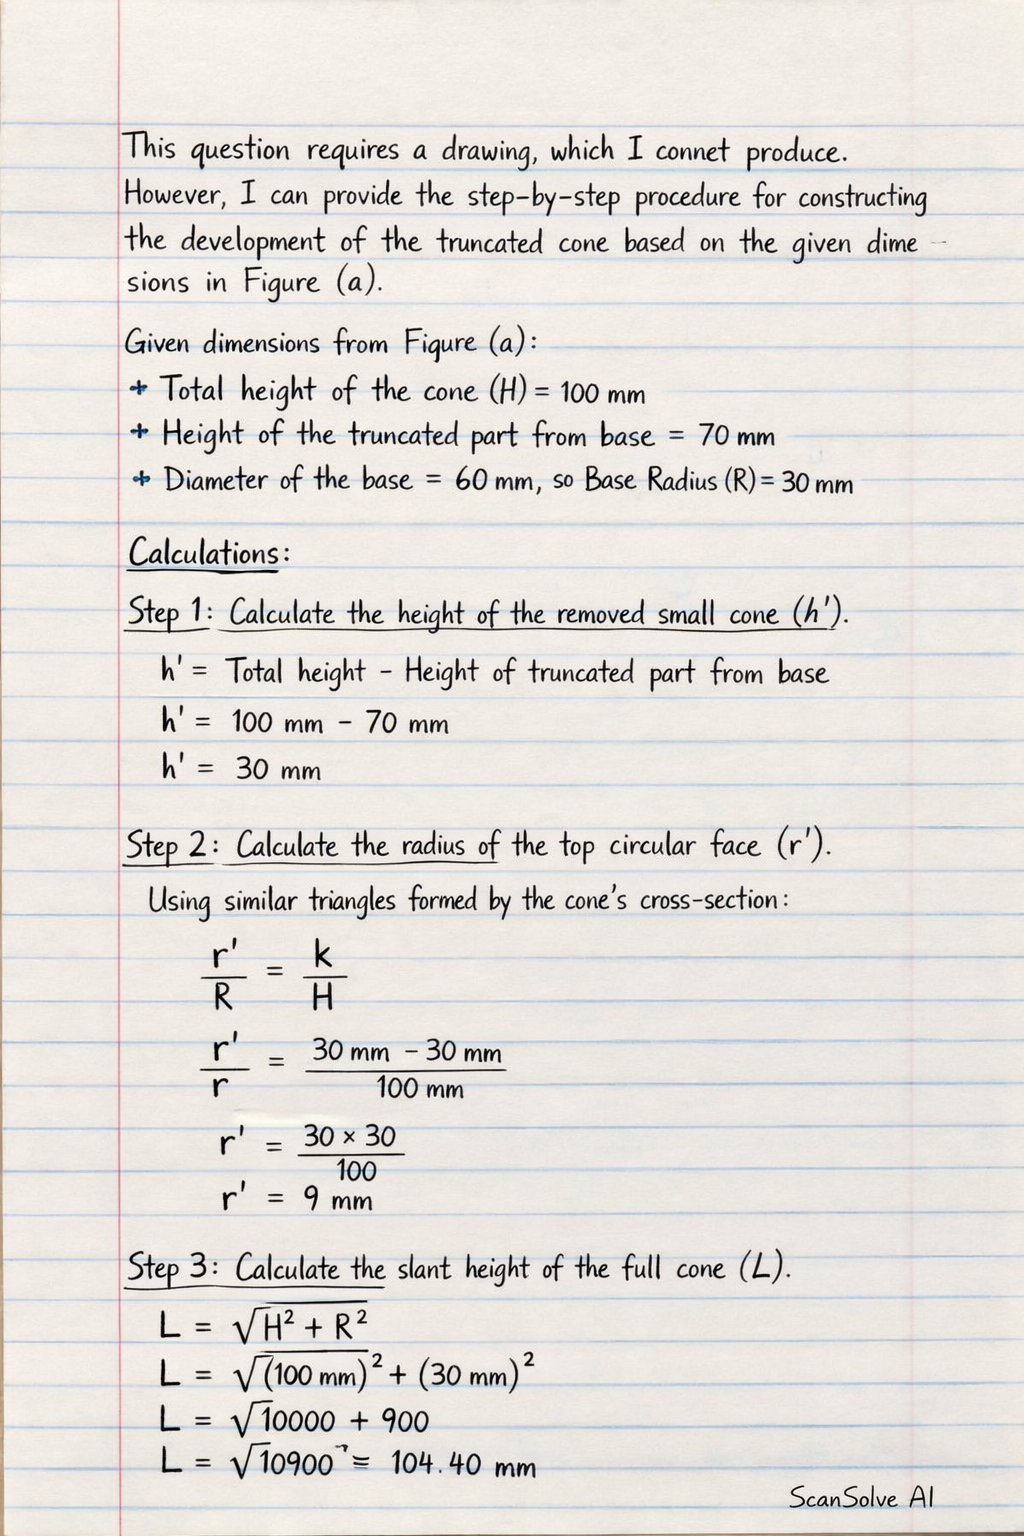 This question requires a drawing, which I connet produce.
However, I can provide the step-by-step procedure for constructing
the development of the truncated cone based on the given dime -
sions in Figure (a).
Given dimensions from Figure (a):
+ Total height of the cone (H) = 100 mm
+ Height of the truncated part from base = 70 mm
+ Diameter of the base = 60 mm, so Base Radius (R) = 30 mm
Calculations:
Step 1: Calculate the height of the removed small cone (h').
h' = Total height - Height of truncated part from base
h' = 100 mm - 70 mm
h' = 30 mm
Step 2: Calculate the radius of the top circular face (r').
Using similar triangles formed by the cone's cross-section:
r'/R = k/H
r'/r = 30 mm - 30 mm/100 mm
r' = 30 × 30/100
r' = 9 mm
Step 3: Calculate the slant height of the full cone (L).
L = √H² + R²
L = √(100 mm)² + (30 mm)²
L = √10000 + 900
L = √10900 ≡ 104.40 mm
ScanSolve AI